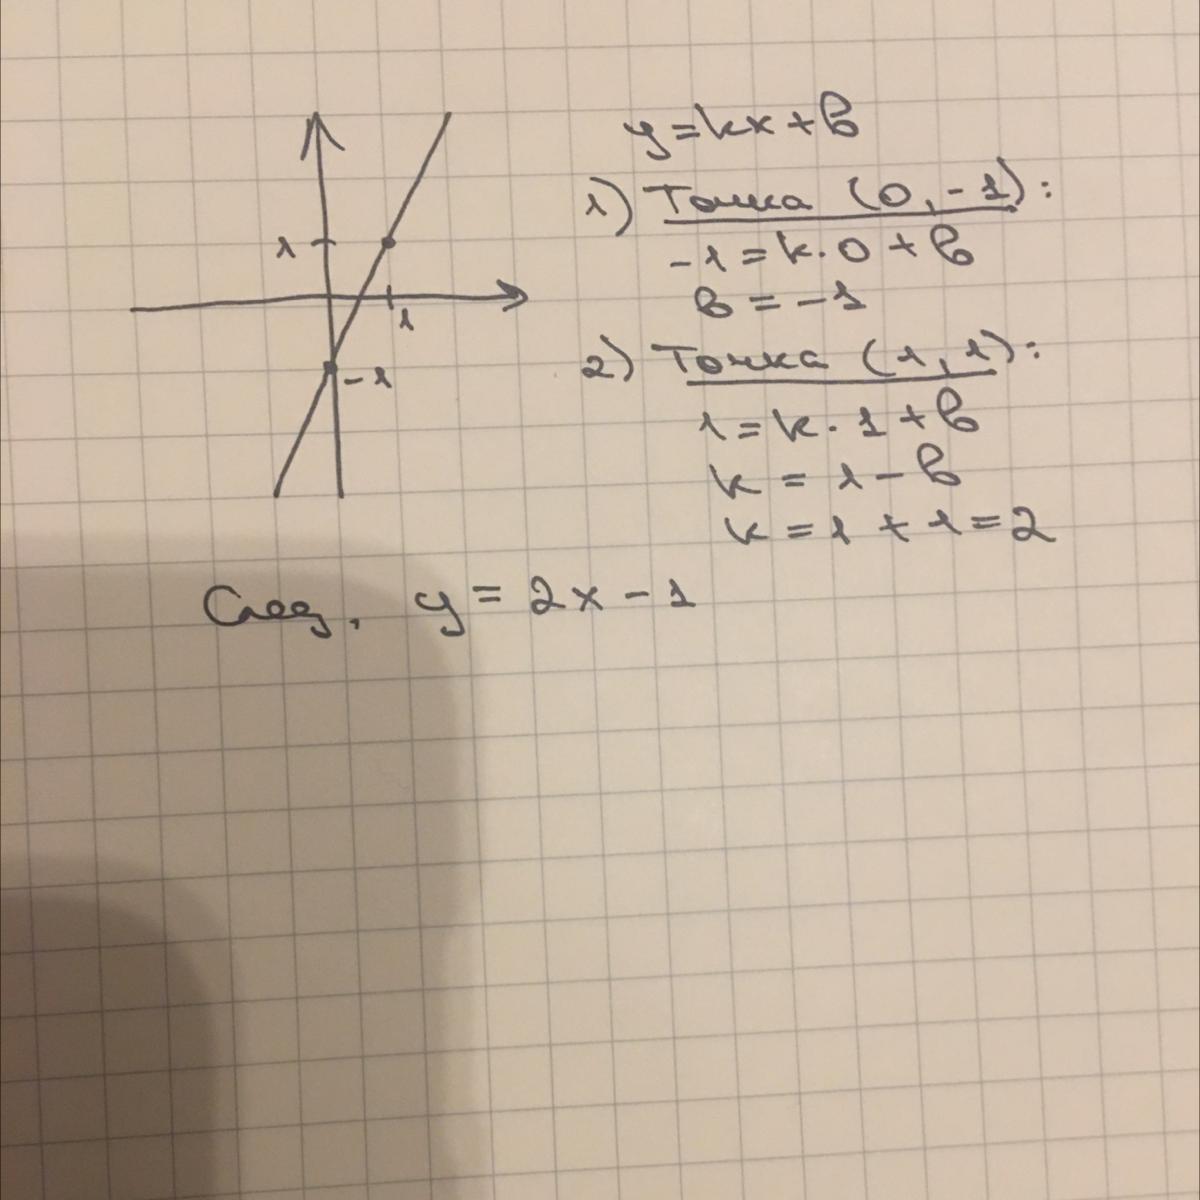 y=kx+b
1) Точка (0,-1):
-1=k·0+b
b=-1
2) Точка (1,1):
1=k·1+b
k=1-b
k=1+1=2
1
1
-1
След. y=2x-1